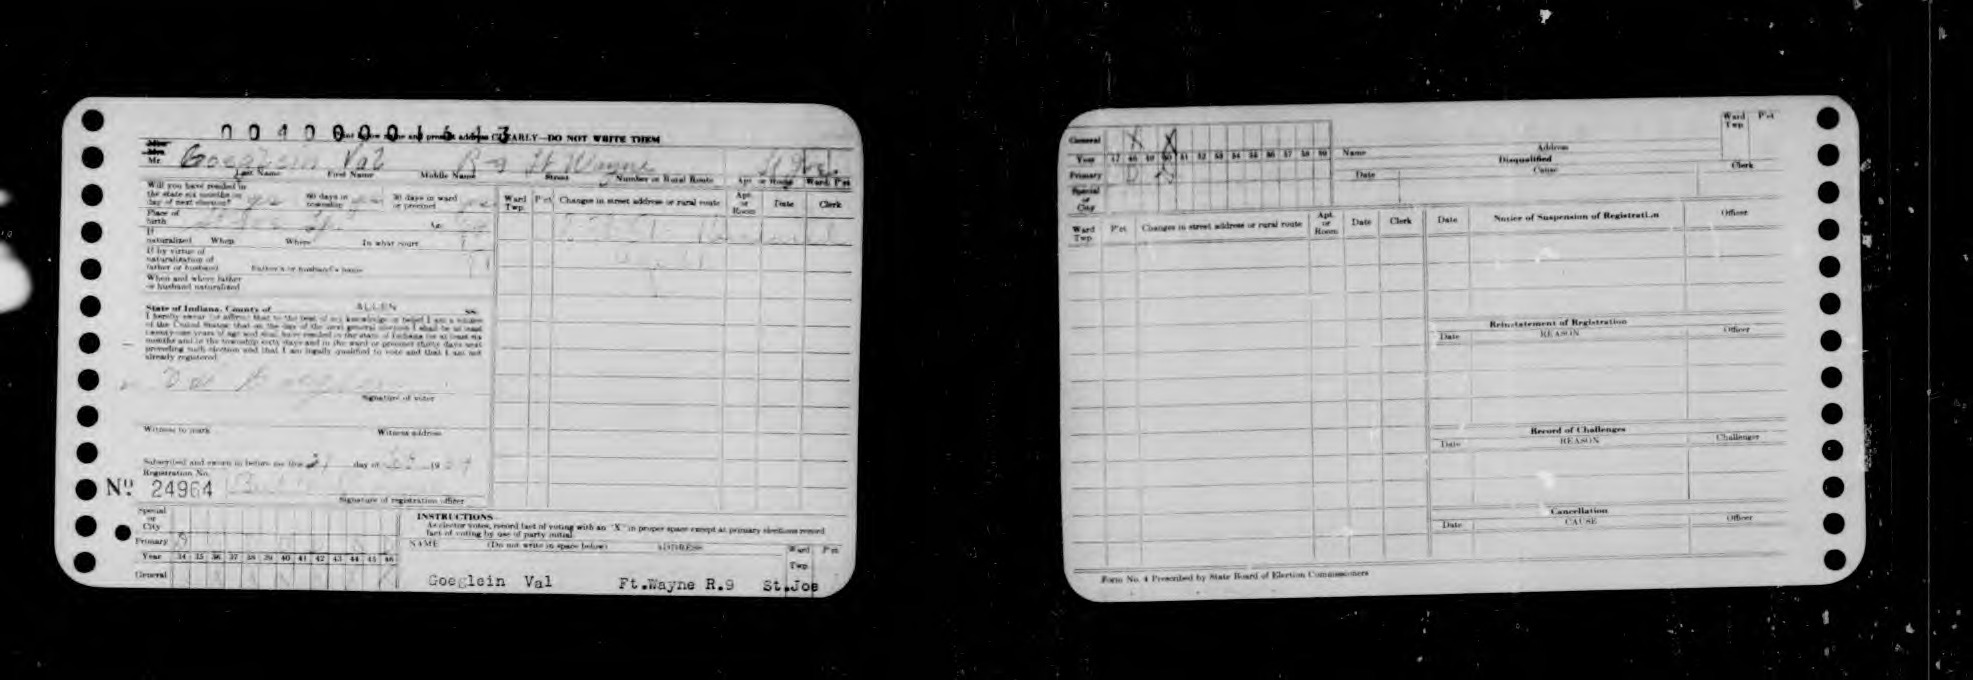 0040001513
CLEARLY—DO NOT WRITE THEM
Mr. Goeglein Val R 9 Ft Wayne St. Joe
Last Name First Name Middle Name Street Number or Rural Route Apt. or Room Ward Pct
Will you have resided in
the state six months on
day of next election? yes 60 days in township yes 30 days in ward or precinct yes
Place of birth
If naturalized When Where In what court
If by virtue of
naturalization of
father or husband Father's or husband's name
When and where father
or husband naturalized
Ward Twp. Pct Changes in street address or rural route Apt. or Room Date Clerk
State of Indiana, County of ALLEN SS:
I hereby swear (or affirm) that to the best of my knowledge or belief I am a citizen
of the United States; that on the day of the next general election I shall be at least
twenty-one years of age and shall have resided in the state of Indiana for at least six
months and in the township sixty days and in the ward or precinct thirty days next
preceding such election and that I am legally qualified to vote and that I am not
already registered.
Val Goeglein
Signature of voter
Witness to mark Witness address
Subscribed and sworn to before me this day of 19
Registration No.
Nº 24964
Signature of registration officer
Special or City
Primary
Year 34 35 36 37 38 39 40 41 42 43 44 45 46
General
INSTRUCTIONS
As elector votes, record fact of voting with an "X" in proper space except at primary elections record
fact of voting by use of party initial.
NAME (Do not write in space below) ADDRESS Ward Twp. Pct
Goeglein Val Ft.Wayne R.9 St.Joe
General X X
Year 47 48 49 50 51 52 53 54 55 56 57 58 59
Primary D
Special or City
Name Address Ward Twp. Pct
Disqualified
Date Cause Clerk
Ward Twp. Pct. Changes in street address or rural route Apt. or Room Date Clerk
Date Notice of Suspension of Registration Officer
Reinstatement of Registration
Date REASON Officer
Record of Challenges
Date REASON Challenger
Cancellation
Date CAUSE Officer
Form No. 4 Prescribed by State Board of Election Commissioners